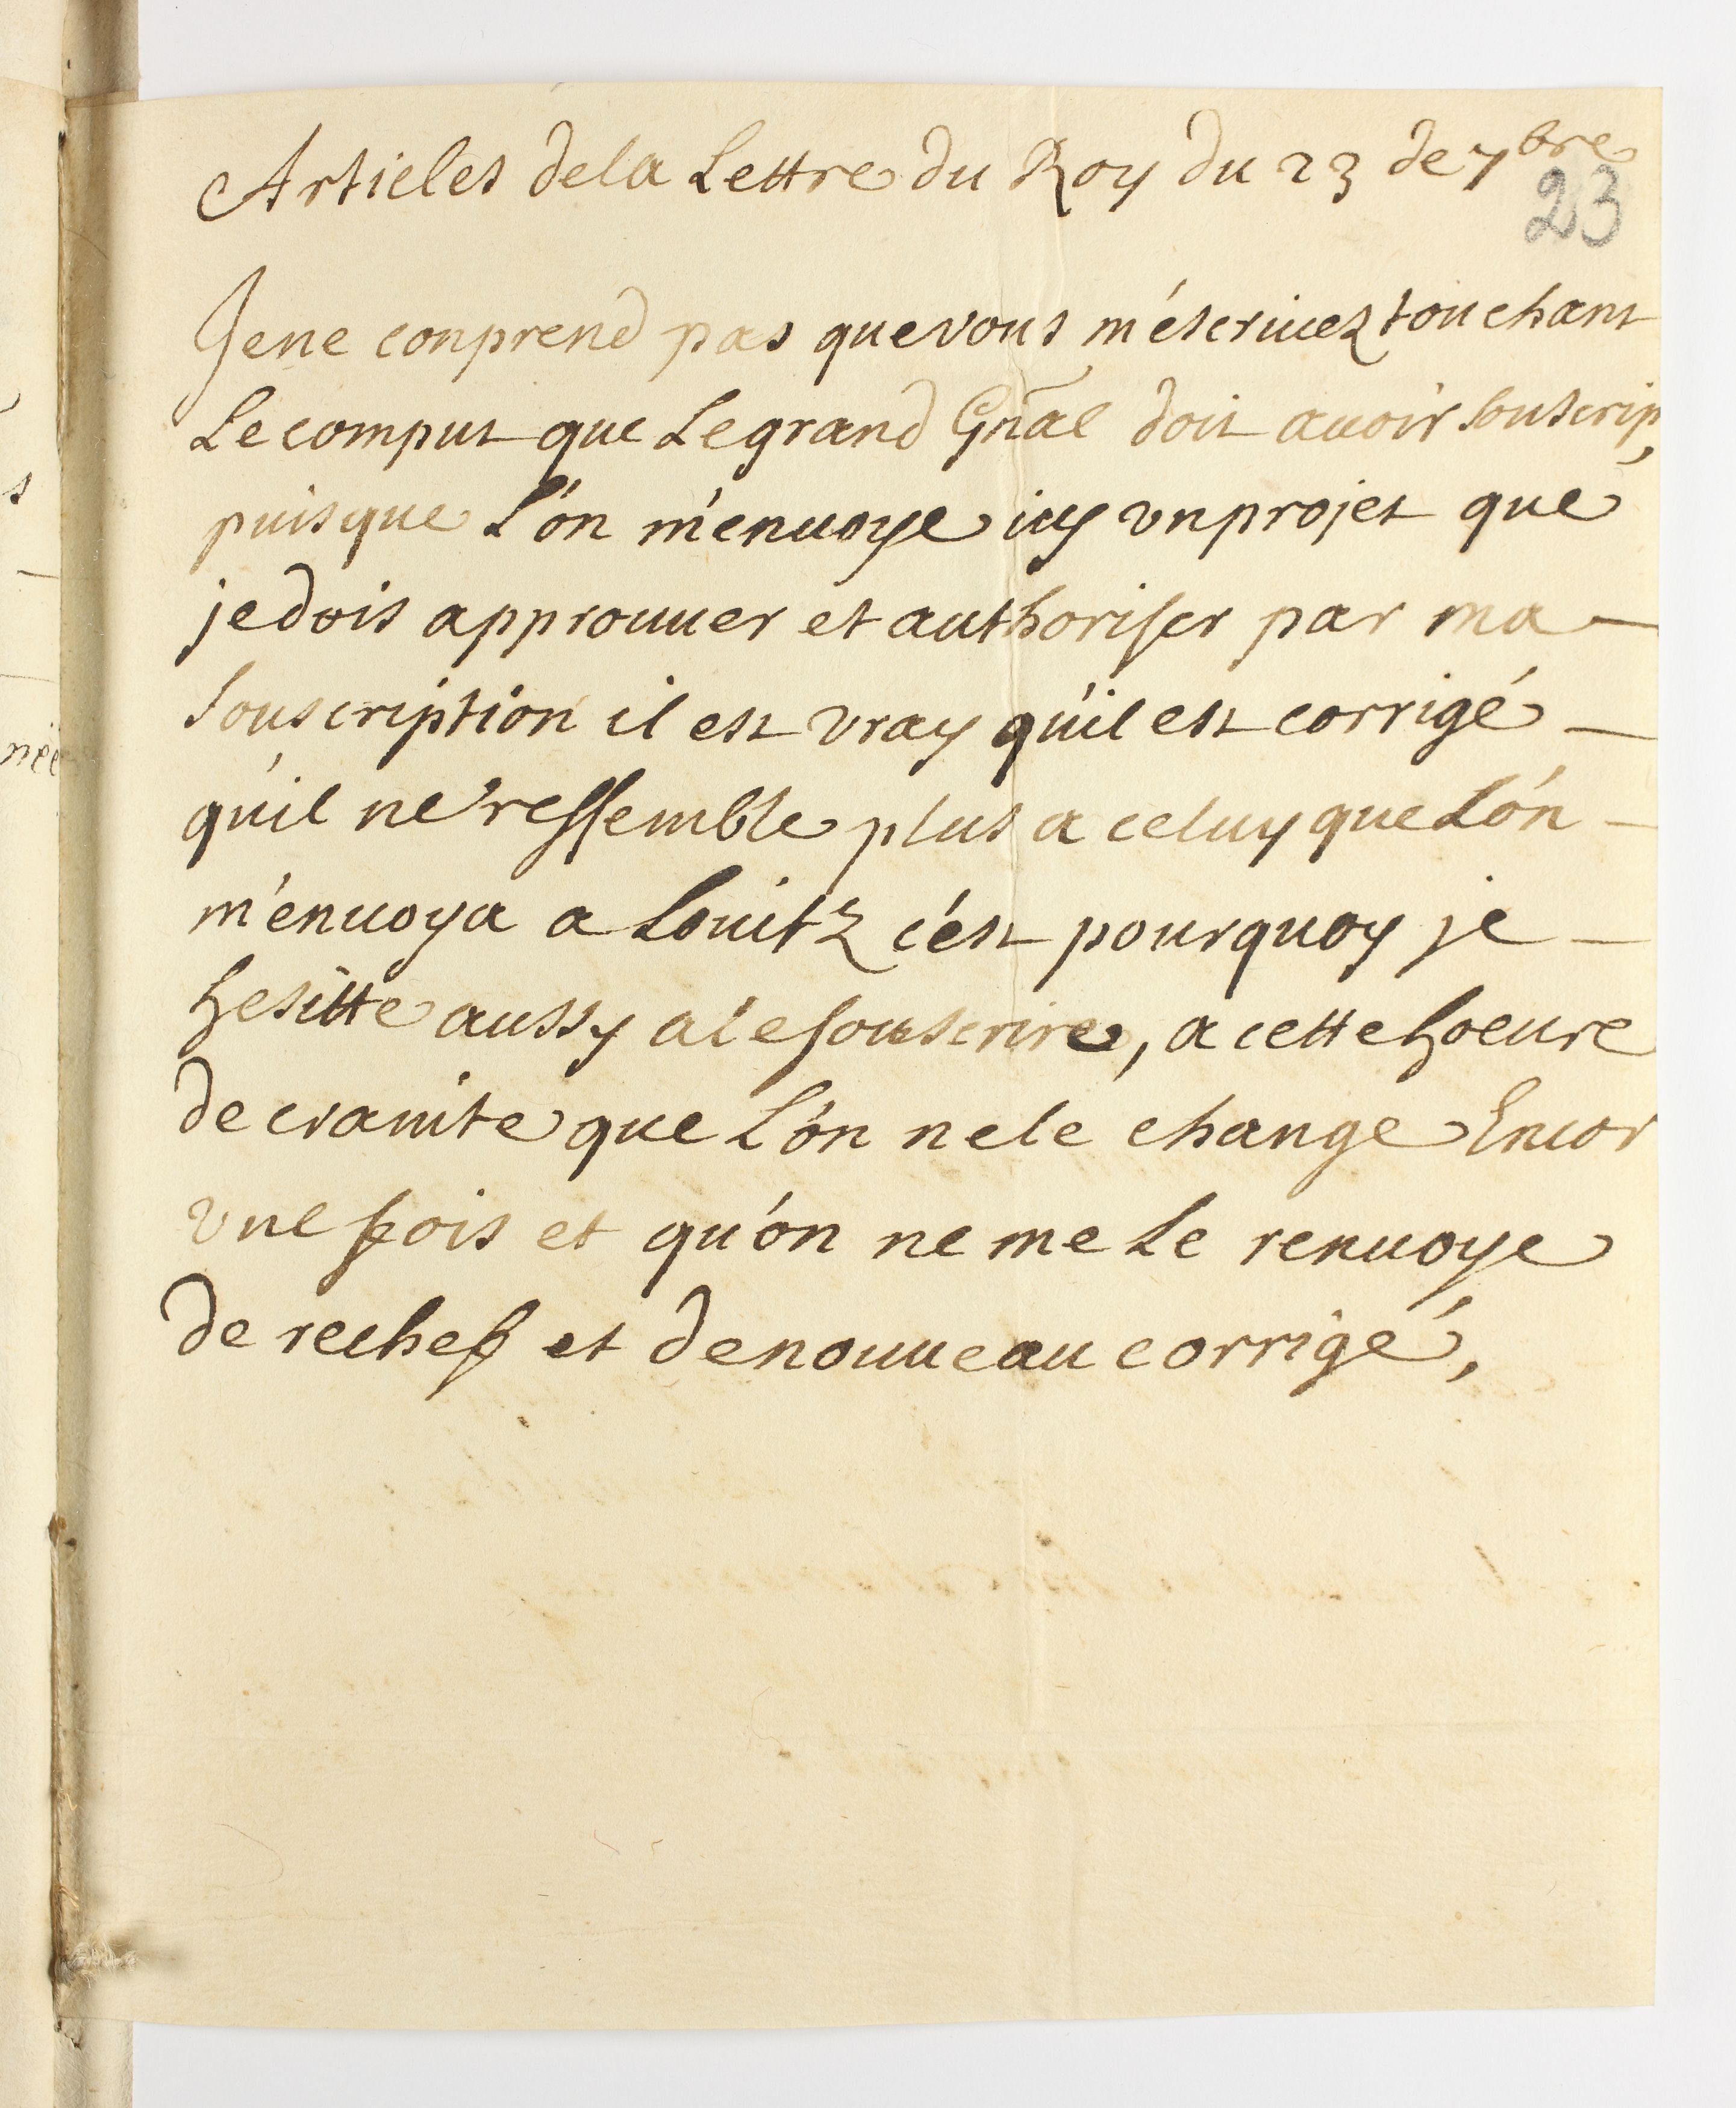 Articles de la Lettre du Roy du 23 de 7bre
23
Je ne conprend pas que vous m'éscriuez touchant
Le comput que Le grand Gñal doit auoir souscrip,
puisque L'ón m'enuoye icy vn projet que
je dois approuuer et authoriser par ma —
souscription il est vray qu'il est corrigé —
qu'il ne ressemble plus a celuy que L'ón —
m'enuoya a Louitz c'ést pourquoy je —
hesitte aussy a le souscrire, a cette hoeure
de crainte que L'ón ne le change Encor
vne fois et qu'ón ne me Le renuoye
de rechef et de nouueau corrigé,
s
née